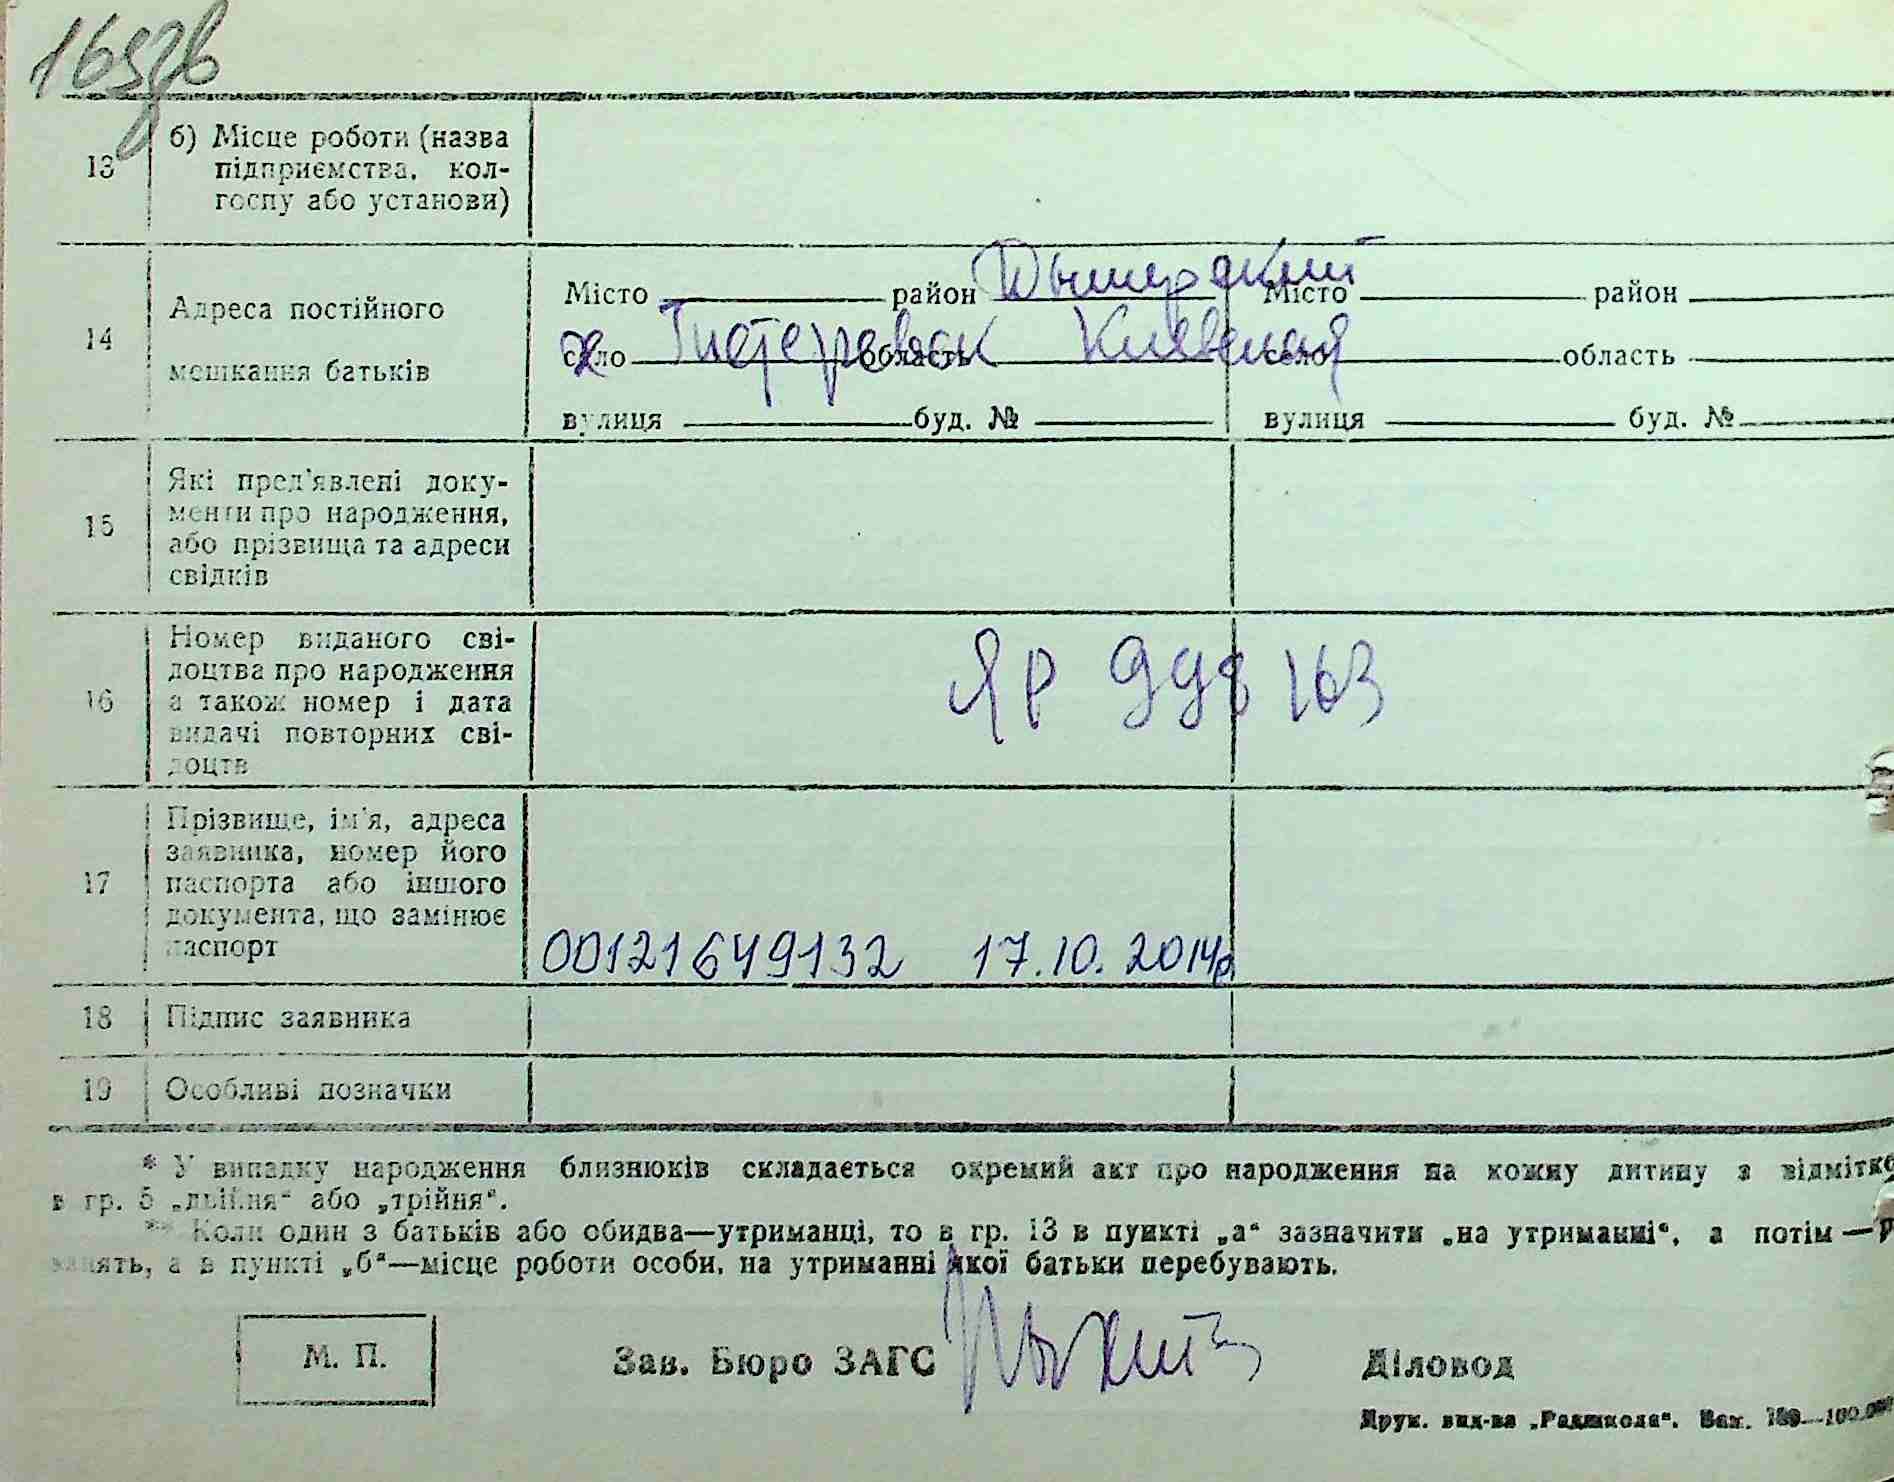 13 б) Місце роботи (назва
підприємства, кол-
госпу або установи)
14 Адреса постійного
мешкання батьків
Місто район Дымерский Місто район
село область Киевская село область
вулиця буд. № вулиця буд. №
15 Які пред'явлені доку-
менти про народження,
або прізвища та адреси
свідків
16 Номер виданого сві-
доцтва про народження
а також номер і дата
видачі повторних сві-
доцтв
ЯР 998163
17 Прізвище, ім'я, адреса
заявника, номер його
паспорта або іншого
документа, що замінює
паспорт
00121649132 17.10.2014р
18 Підпис заявника
19 Особливі позначки
* У випадку народження близнюків складається окремий акт про народження на кожну дитину з відмітко
в гр. 5 „двійня“ або „трійня“.
** Коли один з батьків або обидва—утриманці, то в гр. 13 в пункті „а“ зазначити „на утриманні“, а потім —
занять, а в пункті „б“—місце роботи особи, на утриманні якої батьки перебувають.
М. П.
Зав. Бюро ЗАГС
Діловод
Друк. вид-ва „Радшкола“. Зам.